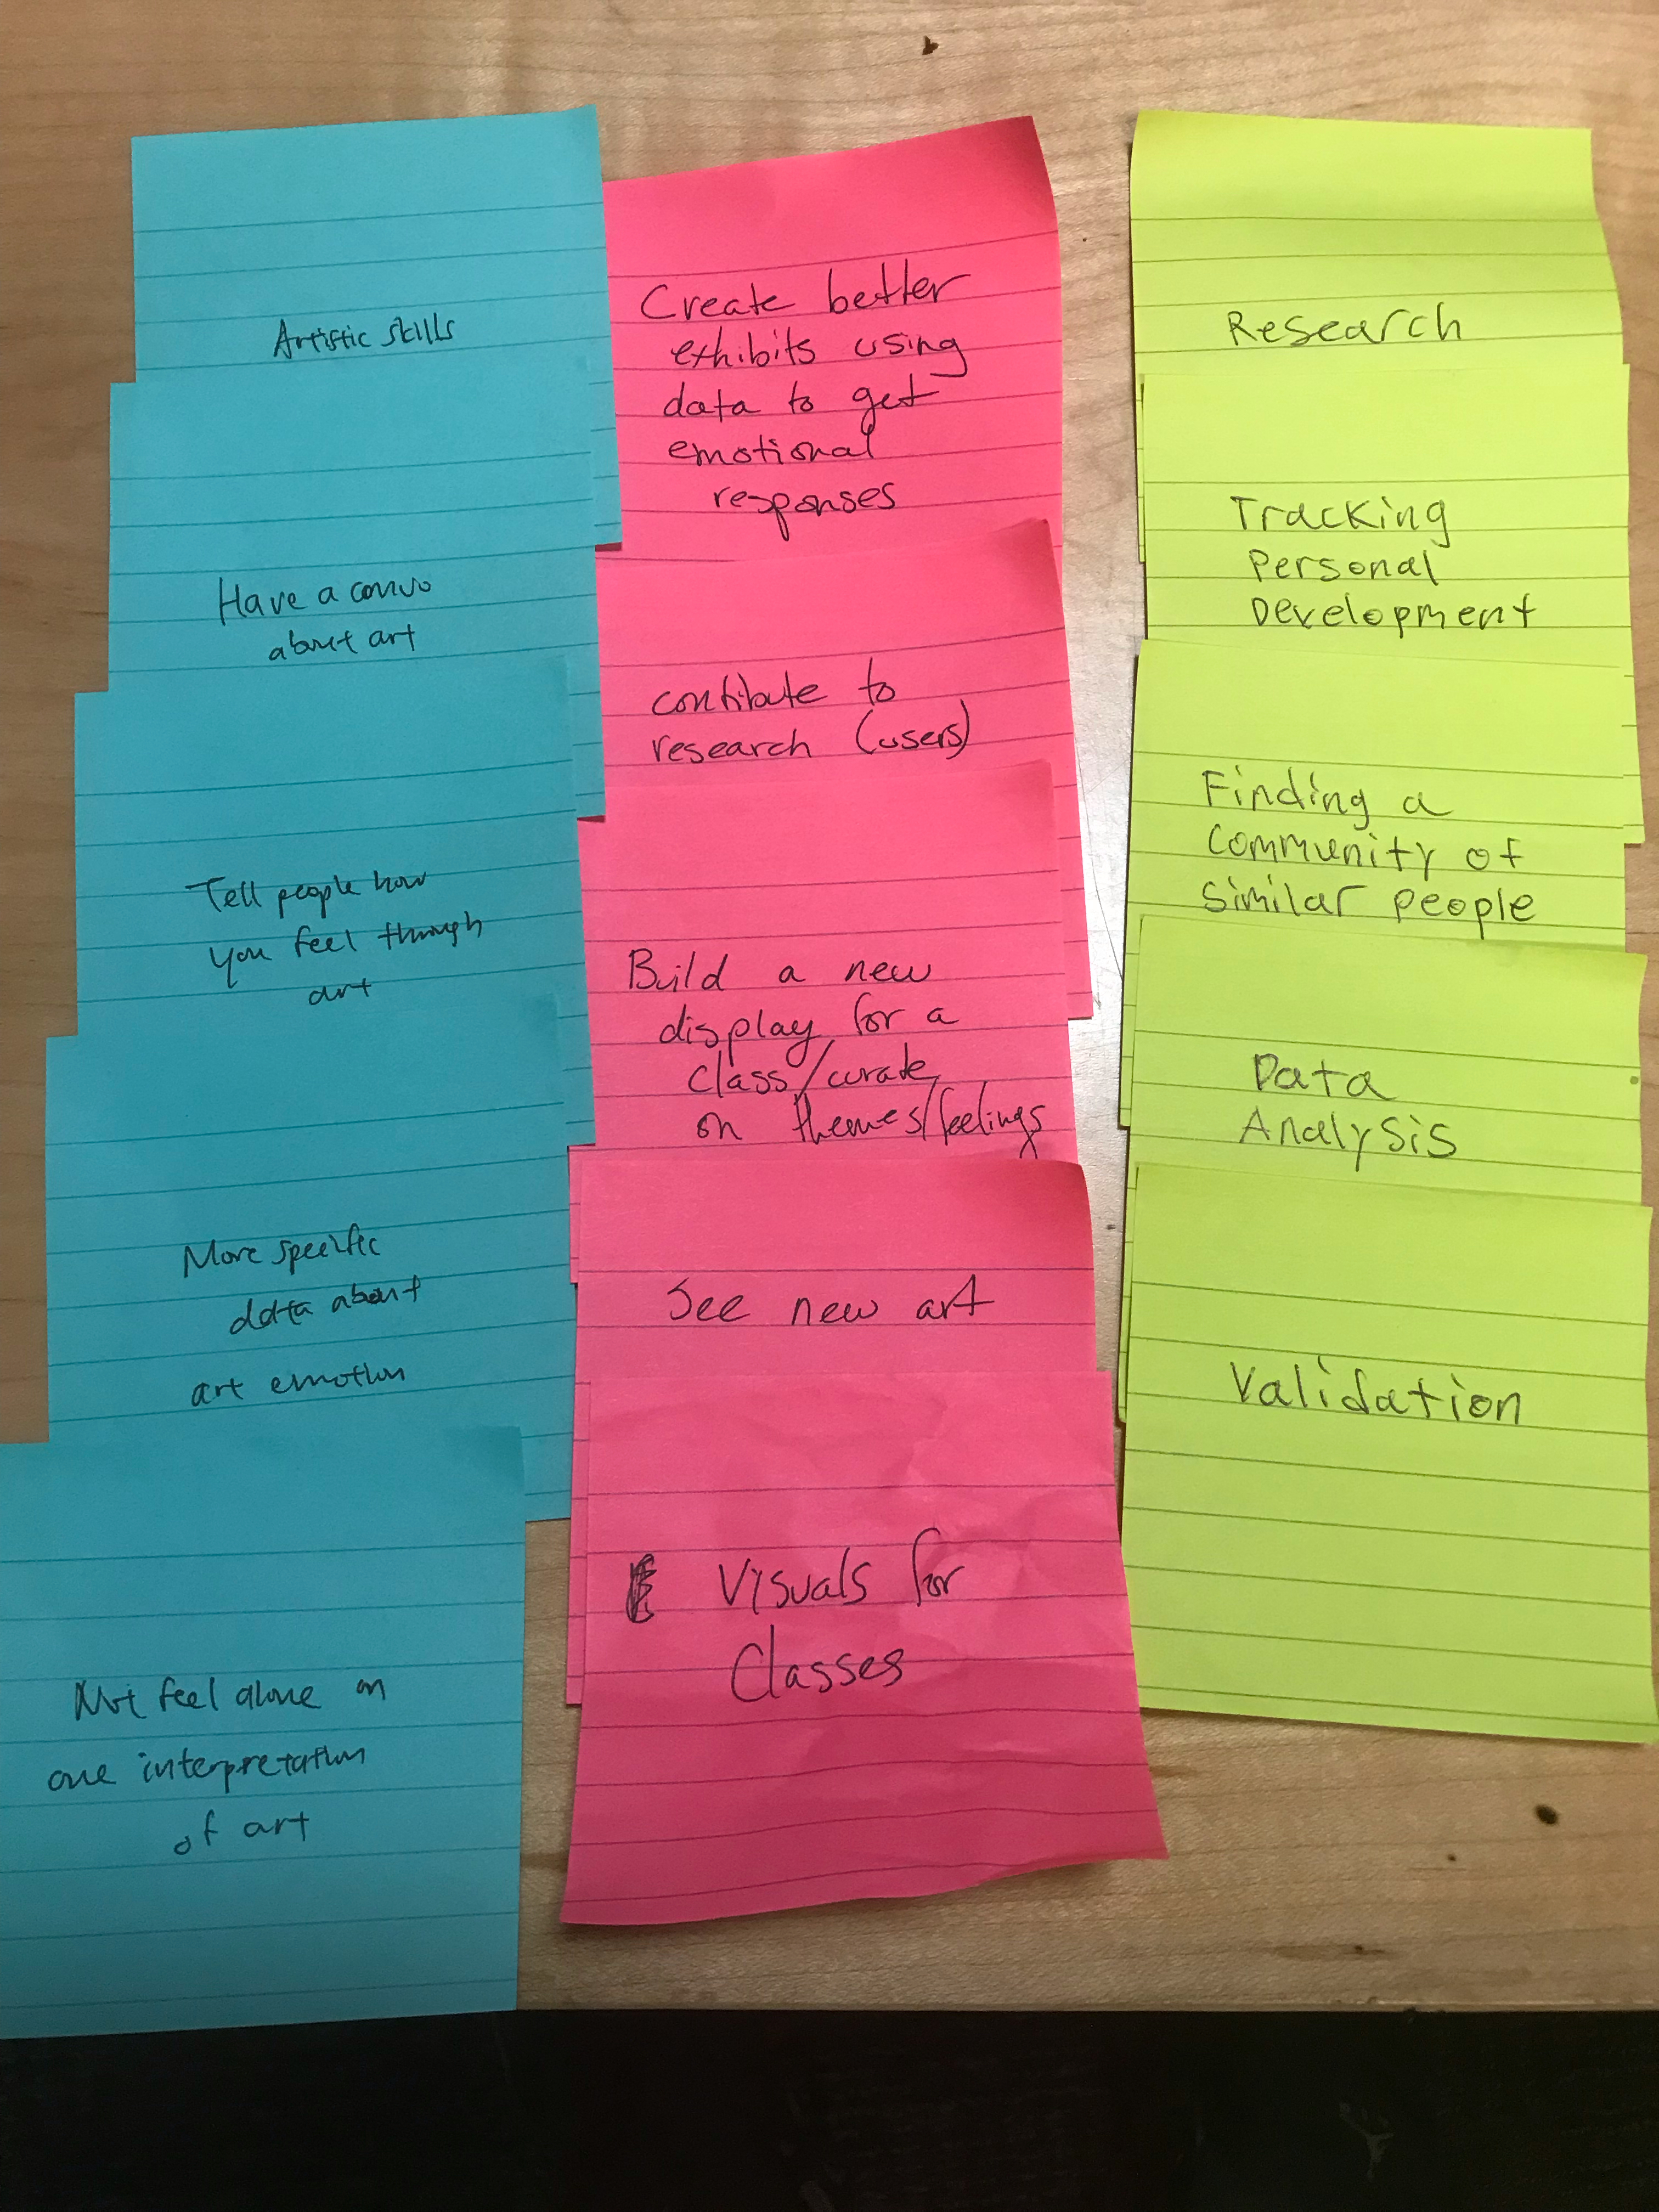 Artistic skills
Have a convo
about art
Tell people how
you feel through
art
More specific
data about
art emotion
Not feel alone on
one interpretation
of art
Create better
exhibits using
data to get
emotional
responses
contibute to
research (users)
Build a new
display for a
class/curate
on themes/feelings
See new art
Visuals for
Classes
Research
Tracking
Personal
Development
Finding a
Community of
similar people
Data
Analysis
Validation